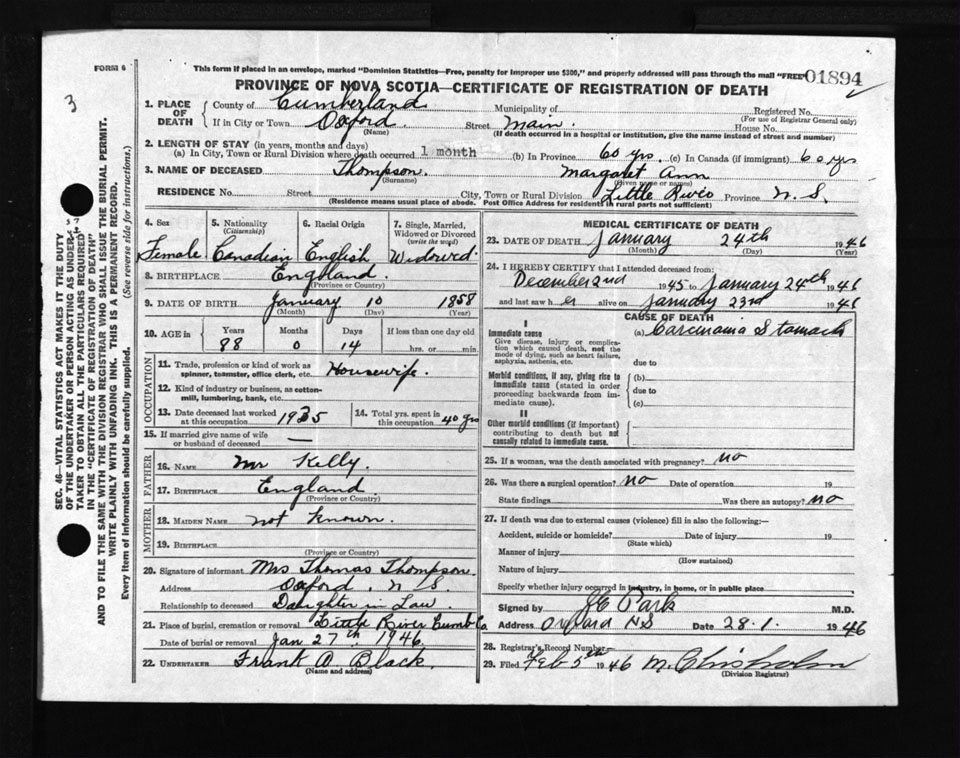 FORM 6
This form if placed in an envelope, marked "Dominion Statistics—Free, penalty for improper use $300," and properly addressed will pass through the mail "FREE"
01894
3
PROVINCE OF NOVA SCOTIA—CERTIFICATE OF REGISTRATION OF DEATH
1. PLACE OF DEATH
County of Cumberland Municipality of Registered No.
(For use of Registrar General only)
If in City or Town Oxford Street Main. House No.
(Name) (If death occurred in a hospital or institution, give the name instead of street and number)
2. LENGTH OF STAY (in years, months and days)
(a) In City, Town or Rural Division where death occurred 1 month (b) In Province 60 yrs. (c) In Canada (if immigrant) 60 yrs
3. NAME OF DECEASED Thompson. Margaret Ann
(Surname) (Given name or names)
RESIDENCE No. Street City, Town or Rural Division Little River Province N.S.
(Residence means usual place of abode. Post Office Address for residents in rural parts not sufficient)
4. Sex Female.
5. Nationality (Citizenship) Canadian
6. Racial Origin English
7. Single, Married, Widowed or Divorced (write the word) Widowed.
8. BIRTHPLACE England.
(Province or Country)
9. DATE OF BIRTH January 10 1858
(Month) (Day) (Year)
10. AGE in Years 88 Months 0 Days 14 If less than one day old hrs. or min.
OCCUPATION
11. Trade, profession or kind of work as spinner, teamster, office clerk, etc. Housewife.
12. Kind of industry or business, as cotton-mill, lumbering, bank, etc.
13. Date deceased last worked at this occupation 1935
14. Total yrs. spent in this occupation 40 yrs
15. If married give name of wife or husband of deceased —
FATHER
16. NAME Mr Kelly.
17. BIRTHPLACE England.
(Province or Country)
MOTHER
18. MAIDEN NAME not known.
19. BIRTHPLACE
(Province or Country)
20. Signature of informant Mrs Thomas Thompson.
Address Oxford. N S.
Relationship to deceased Daughter in Law.
21. Place of burial, cremation or removal Little River Cumb Co
Date of burial or removal Jan 27th. 1946.
22. UNDERTAKER Frank A Black.
(Name and address)
MEDICAL CERTIFICATE OF DEATH
23. DATE OF DEATH January 24th 1946
(Month) (Day) (Year)
24. I HEREBY CERTIFY that I attended deceased from:
December 2nd 1945 to January 24th 1946
and last saw her alive on January 23rd 1946
CAUSE OF DEATH
I
Immediate cause (a) Carcinomia Stomach
Give disease, injury or complication which caused death, not the mode of dying, such as heart failure, asphyxia, asthenia, etc.
due to
Morbid conditions, if any, giving rise to immediate cause (stated in order proceeding backwards from immediate cause).
(b)
due to
(c)
II
Other morbid conditions (if important) contributing to death but not causally related to immediate cause.
25. If a woman, was the death associated with pregnancy? no
26. Was there a surgical operation? no Date of operation 19
State findings Was there an autopsy? no
27. If death was due to external causes (violence) fill in also the following:—
Accident, suicide or homicide? Date of injury 19
(State which)
Manner of injury
(How sustained)
Nature of injury
Specify whether injury occurred in industry, in home, or in public place
Signed by JE Park M.D.
Address Oxford NS Date 28.1. 1946
28. Registrar's Record Number
29. Filed Feb 5th 1946 M. Chisholm
(Division Registrar)
SEC. 46—VITAL STATISTICS ACT MAKES IT THE DUTY
OF THE UNDERTAKER OR PERSON ACTING AS UNDER-
TAKER TO OBTAIN ALL THE PARTICULARS REQUIRED
IN THE "CERTIFICATE OF REGISTRATION OF DEATH"
AND TO FILE THE SAME WITH THE DIVISION REGISTRAR WHO SHALL ISSUE THE BURIAL PERMIT.
WRITE PLAINLY WITH UNFADING INK. THIS IS A PERMANENT RECORD.
Every item of information should be carefully supplied. (See reverse side for instructions.)